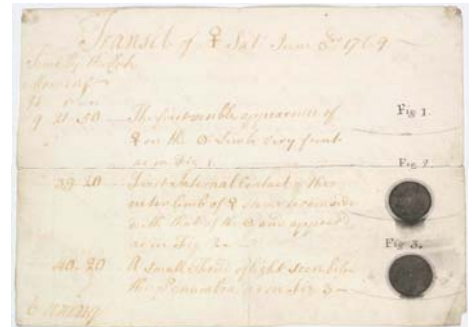 Transit of ♀ Sat June 3rd 1769
Time by the Clock
Morning
h
9 21 50 The first visible appearance of
♀ on the ☉ Limb very faint
as in Fig 1.
39 20 First Internal Contact of the
outer limb of ♀ seem to coincide
with that of the ☉ and appeared
as in Fig 2
40 20 A small thread of light seen below
the Penumbra as in Fig 3
Evening
Fig 1
Fig 2.
Fig 3.